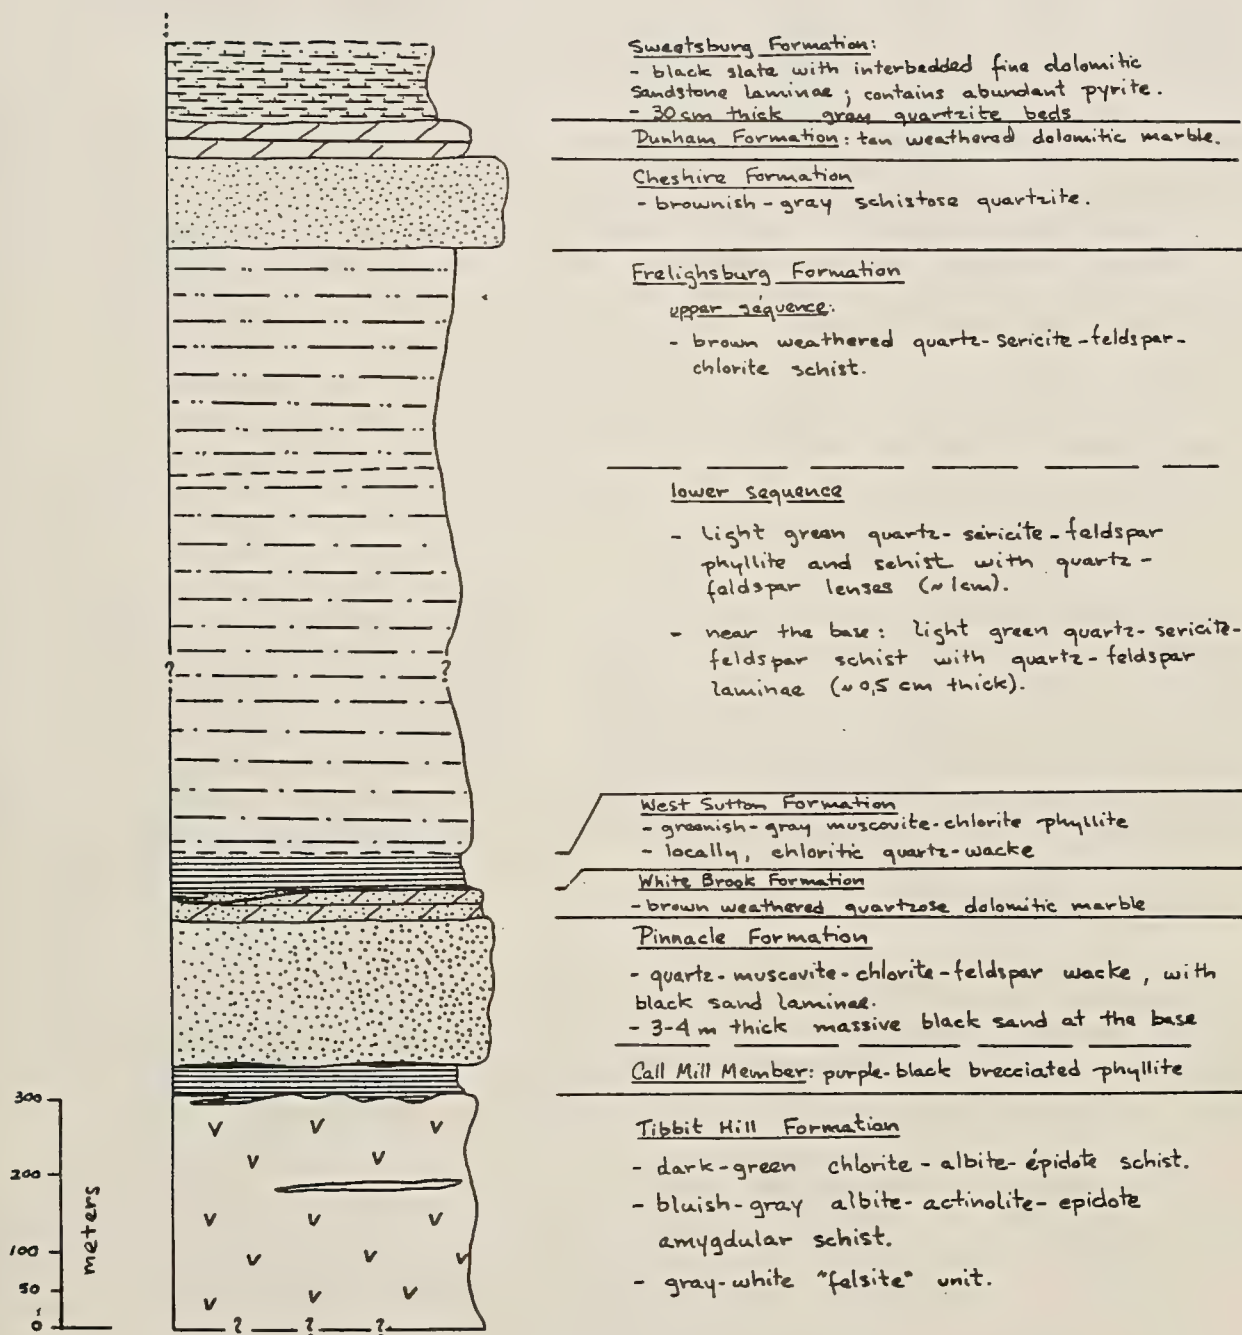 Sweetsburg Formation:
- black slate with interbedded fine dolomitic
sandstone laminae ; contains abundant pyrite.
- 30 cm thick gray quartzite beds
Dunham Formation : tan weathered dolomitic marble.
Cheshire Formation
- brownish - gray schistose quartzite.
Frelighsburg Formation
upper séquence:
- brown weathered quartz-sericite-feldspar-
chlorite schist.
lower sequence
- light green quartz-sericite-feldspar
phyllite and schist with quartz-
feldspar lenses (~1cm).
- near the base: light green quartz-sericite-
feldspar schist with quartz-feldspar
laminae (~0,5 cm thick).
? ?
West Sutton Formation
- greenish-gray muscovite-chlorite phyllite
- locally, chloritic quartz-wacke
White Brook Formation
- brown weathered quartzose dolomitic marble
Pinnacle Formation
- quartz-muscovite-chlorite-feldspar wacke, with
black sand laminae.
- 3-4 m thick massive black sand at the base
Call Mill Member: purple-black brecciated phyllite
Tibbit Hill Formation
- dark-green chlorite-albite-épidote schist.
- bluish-gray albite-actinolite-epidote
amygdular schist.
- gray-white "felsite" unit.
300
200
100
50
0
meters
v v v
v v
v v v
v v v
v v v
? ? ?